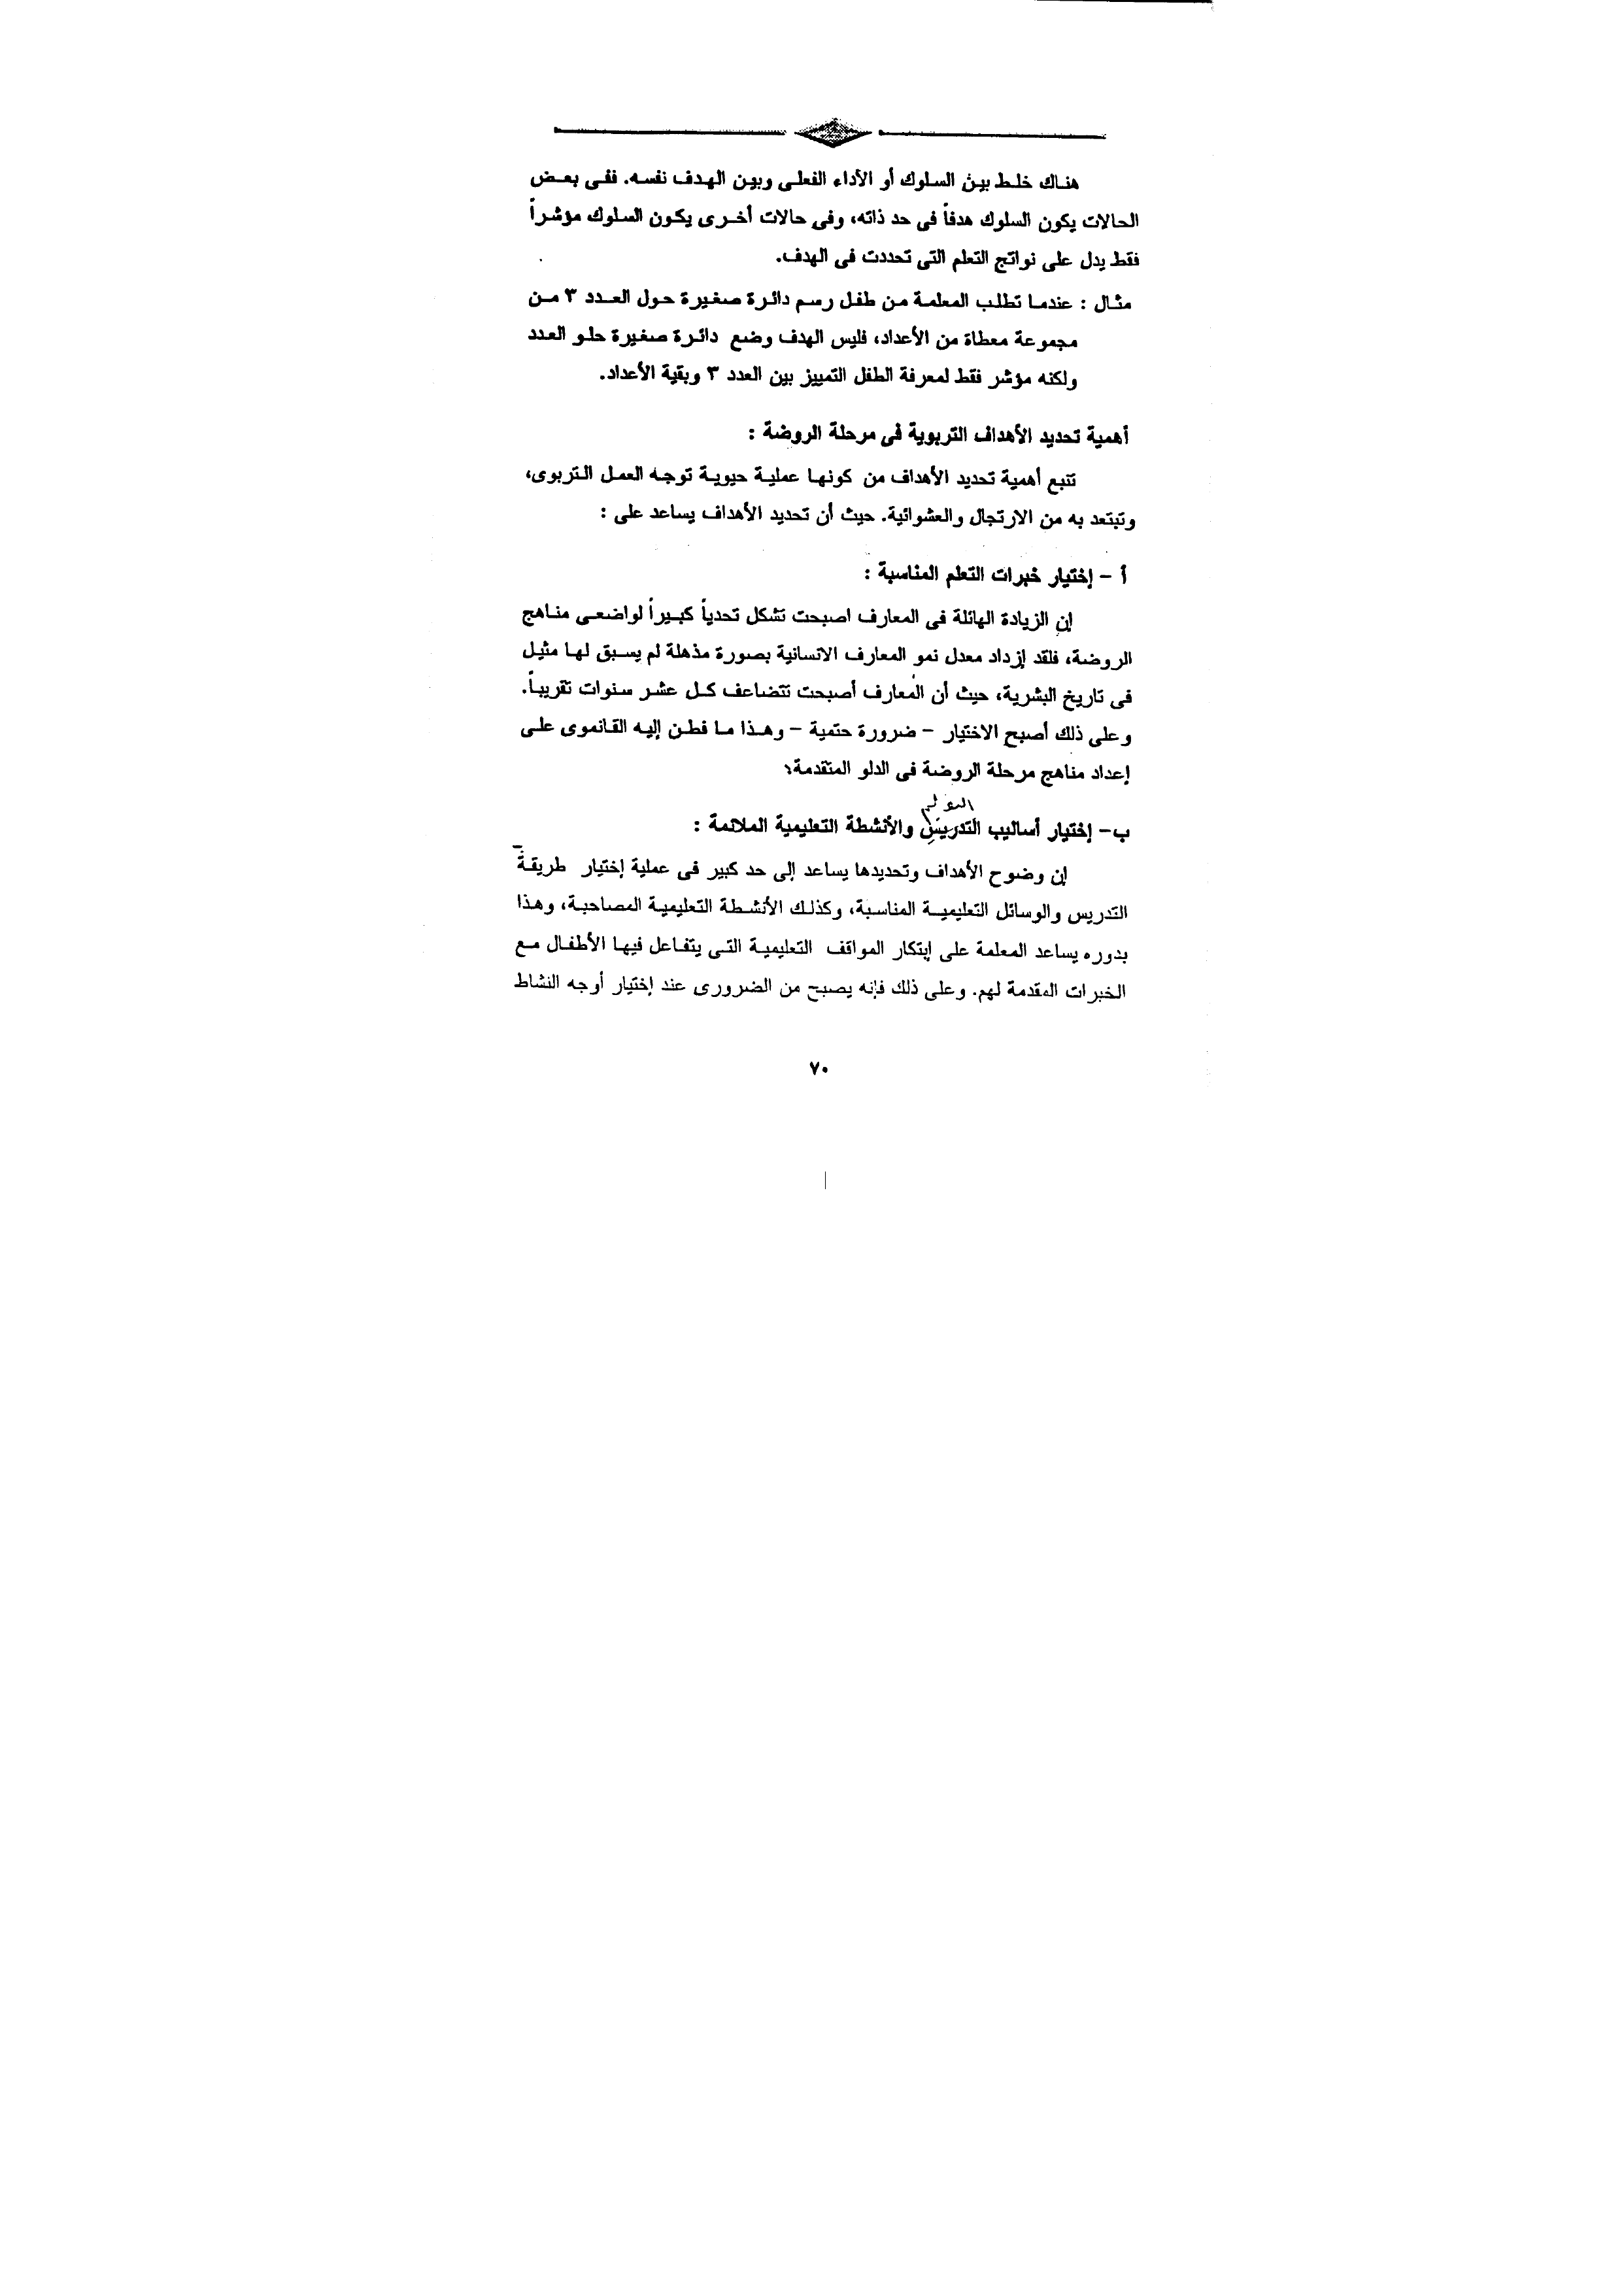 هناك خلط بين السلوك أو الأداء الفعلى وبين الهدف نفسه. ففى بعض
الحالات يكون السلوك هدفاً فى حد ذاته، وفى حالات أخرى يكون السلوك مؤشراً
فقط يدل على نواتج التعلم التى تحددت فى الهدف.
مثال : عندما تطلب المعلمة من طفل رسم دائرة صغيرة حول العدد ٣ من
مجموعة معطاة من الأعداد، فليس الهدف وضع دائرة صغيرة حلو العدد
ولكنه مؤشر فقط لمعرفة الطفل التمييز بين العدد ٣ وبقية الأعداد.
أهمية تحديد الأهداف التربوية فى مرحلة الروضة :
تتبع أهمية تحديد الأهداف من كونها عملية حيوية توجه العمل التربوى،
وتبتعد به من الارتجال والعشوائية. حيث أن تحديد الأهداف يساعد على :
أ - إختيار خبرات التعلم المناسبة :
إن الزيادة الهائلة فى المعارف اصبحت تشكل تحدياً كبيراً لواضعى مناهج
الروضة، فلقد إزداد معدل نمو المعارف الانسانية بصورة مذهلة لم يسبق لها مثيل
فى تاريخ البشرية، حيث أن المعارف أصبحت تتضاعف كل عشر سنوات تقريباً.
وعلى ذلك أصبح الاختيار - ضرورة حتمية - وهذا ما فطن إليه القانموى على
إعداد مناهج مرحلة الروضة فى الدلو المتقدمة؛
ب- إختيار أساليب التدريس والأنشطة التعليمية الملائمة :
إن وضوح الأهداف وتحديدها يساعد إلى حد كبير فى عملية إختيار طريقة
التدريس والوسائل التعليمية المناسبة، وكذلك الأنشطة التعليمية المصاحبة، وهذا
بدوره يساعد المعلمة على إبتكار المواقف التعليمية التى يتفاعل فيها الأطفال مع
الخبرات المقدمة لهم. وعلى ذلك فإنه يصبح من الضرورى عند إختيار أوجه النشاط
٧٠